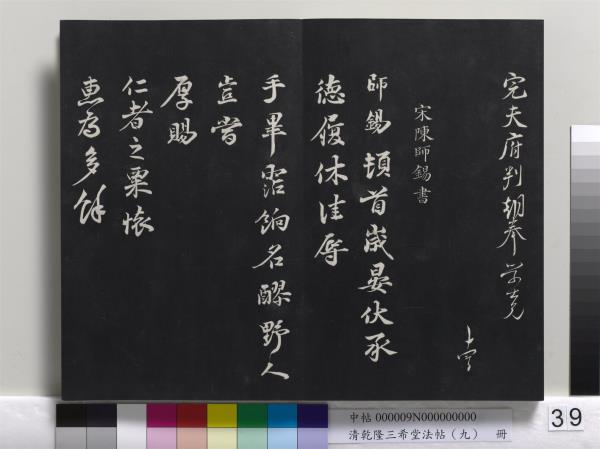 完夫府判朝奉
宋陳師錫書
師錫頓首歲晏伏承
德履休佳辱
手畢霑餉名醪野人
豈嘗
厚賜
仁者之粟懷
惠為多餘
中帖 000009N000000000
清乾隆三希堂法帖（九） 冊
39